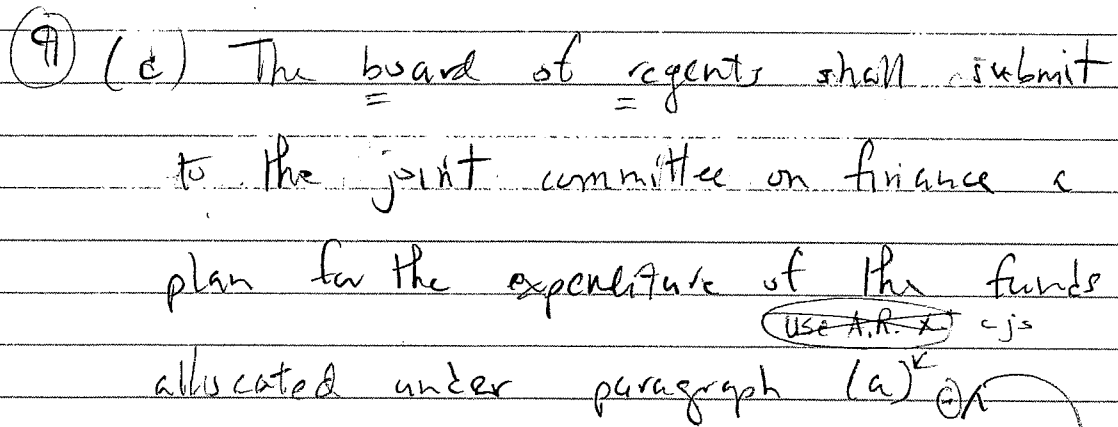 ¶ (c) The board of regents shall submit
to the joint committee on finance a
plan for the expenditure of the funds
USE A.R. X cjs
allocated under paragraph (a)